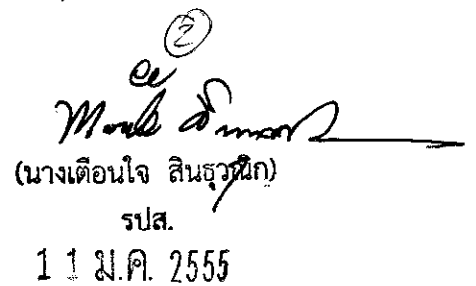 (2)
(นางเตือนใจ สินธุวณิก)
รปส.
11 ม.ค. 2555